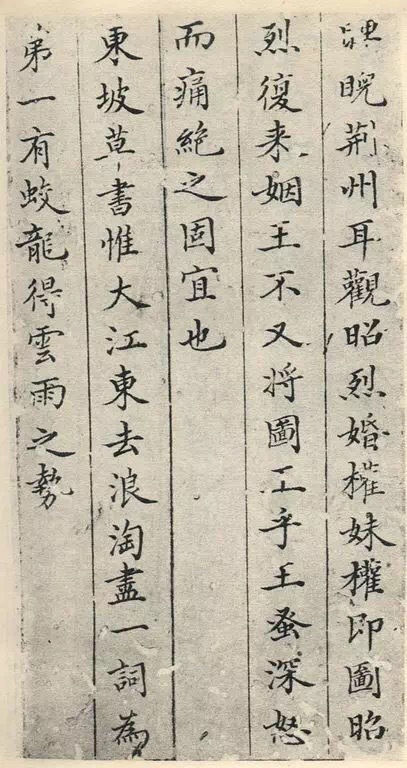 睥睨荊州耳觀昭烈婚權妹權即圖昭
烈復来姻王不又将圖王乎王蚤深怒
而痛絶之固宜也
東坡草書惟大江東去浪淘盡一詞為
弟一有蛟龍得雲雨之勢